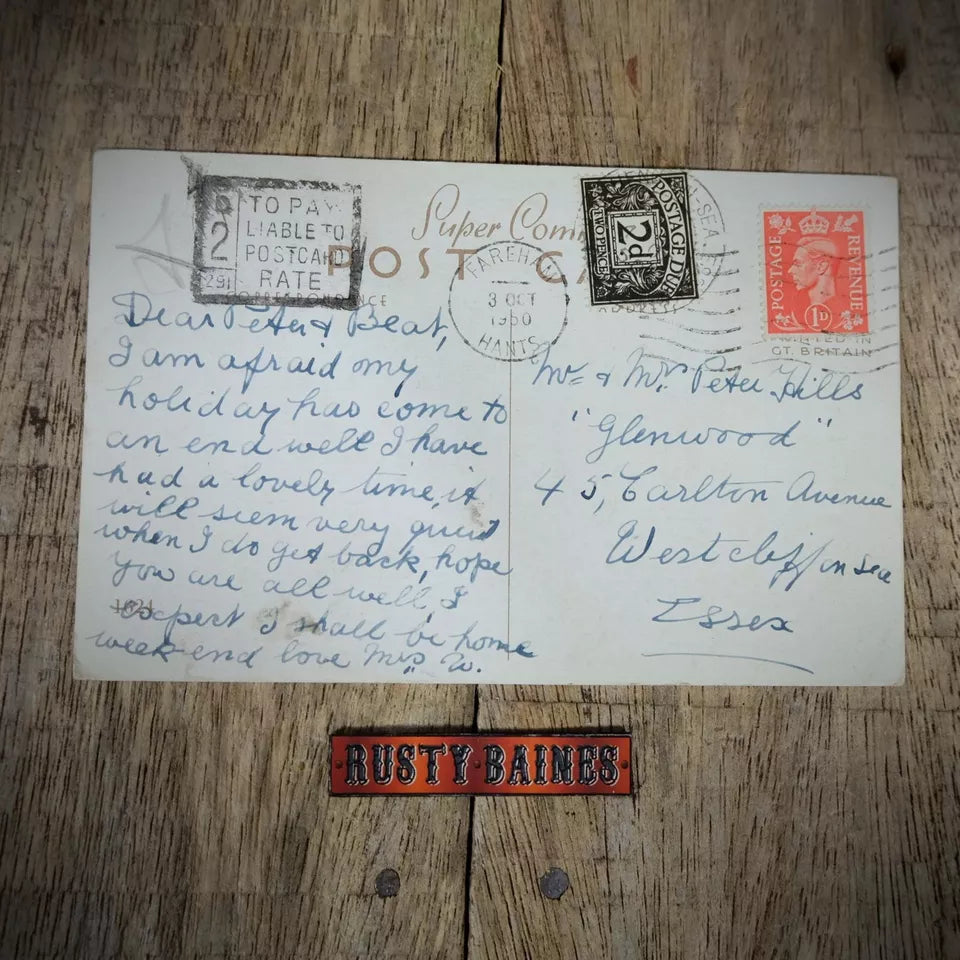 D
2
291
TO PAY
LIABLE TO
POSTCARD
RATE
Super
POST CA
ADDRESS
FAREHAM
3 OCT
1950
HANTS
POSTAGE DUE
2d.
TWO PENCE
SEA
POSTAGE
REVENUE
1D
GT. BRITAIN
Dear Peter & Beat,
I am afraid my
holiday has come to
an end well I have
had a lovely time, it
will seem very quiet
when I do get back, hope
you are all well, I
expect I shall be home
week-end love Mrs W.
Mr & Mrs Peter Hills
"Glenwood"
45, Carlton Avenue
Westcliff on Sea
Essex
RUSTY BAINES